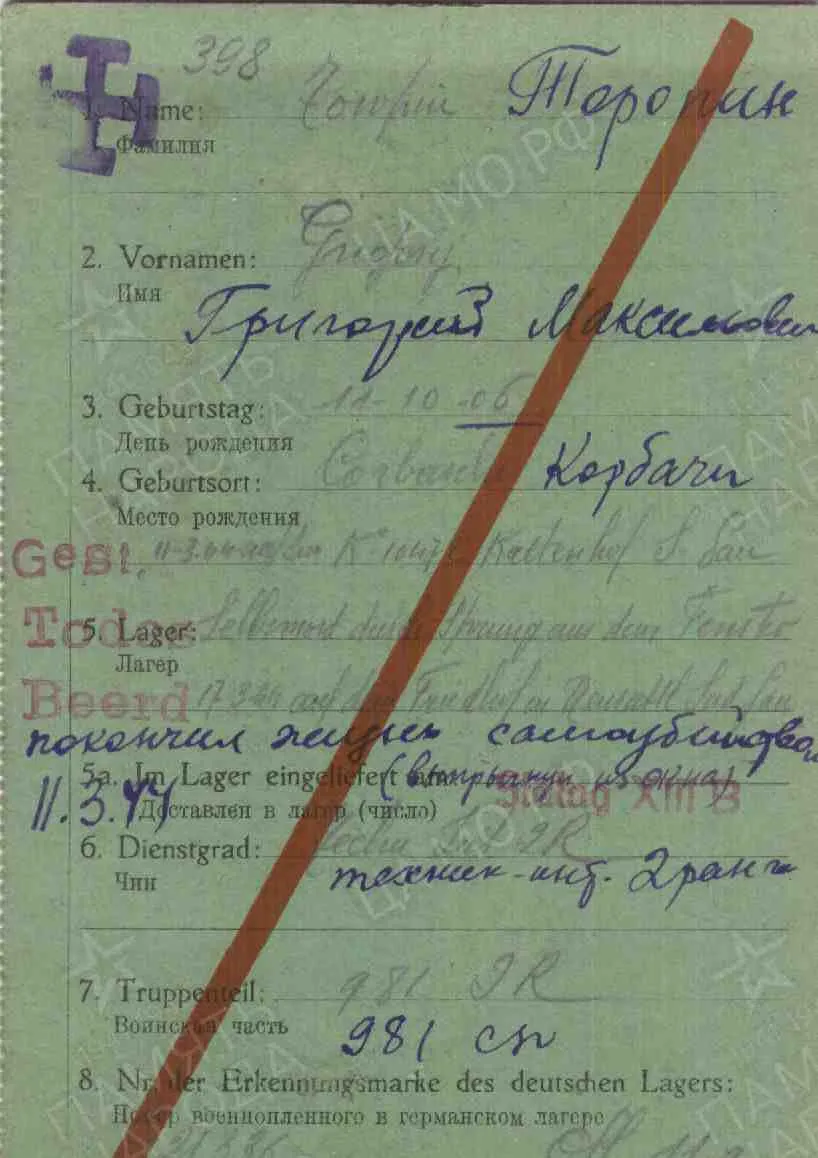 398
1. Name: Торопин
Фамилия
2. Vornamen: Grigory
Имя
Григорий Максимович
3. Geburtstag: 11-10-06
День рождения
4. Geburtsort: Корбачи
Место рождения
Gest. 11.3.44
5. Lager: Selbstmord durch Sprung aus dem Fenster
Todes
Лагер
Beerd 17.3.44 auf dem Friedhof in
покончил жизнь самоубийством
5a. Im Lager eingeliefert am: (выпрыгнул из окна)
11.3.44 Доставлен в лагер (число) Stalag XIII B
6. Dienstgrad: 2R
Чин техник-инт. 2 ранга
7. Truppenteil: 981 IR
Воинская часть 981 сп
8. Nr. der Erkennungsmarke des deutschen Lagers:
Номер военнопленного в германском лагере